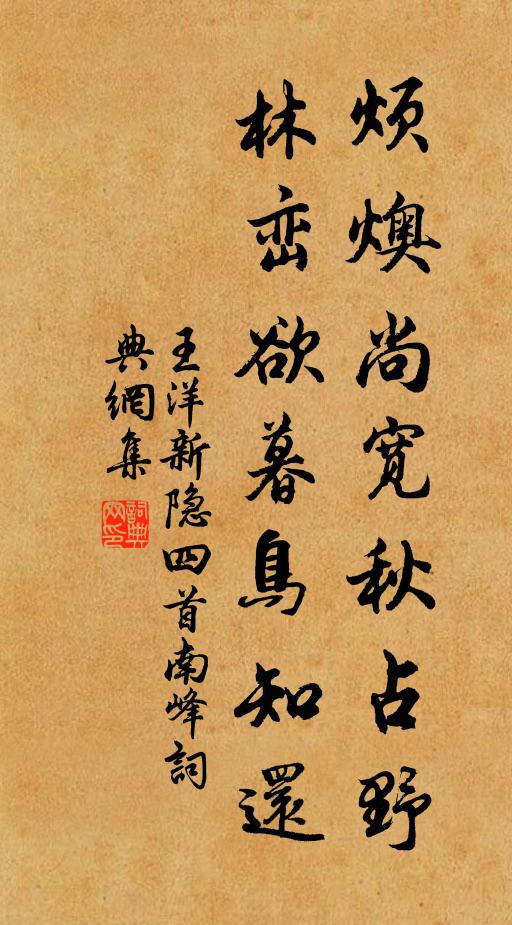 烦燠尚宽秋占野
林峦欲暮鳥知還
王洋新隐四首南峰詞
典網集
詞典網印